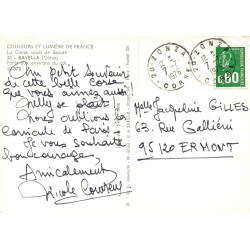 COULEURS ET LUMIÈRE DE FRANCE
La Corse, oasis de Beauté
20 - BAVELLA (Corse)
Un petit souvenir
de cette belle Corse
que vous aimez aussi
Nelly se plaît.
Nous oublions la
canicule de Paris.
Je vous souhaite
bon courage,
Amicalement
Nicole
20 ZONZA
0,80
Melle Jacqueline GILLES
63, Rue Galliéni
95120 ERMONT